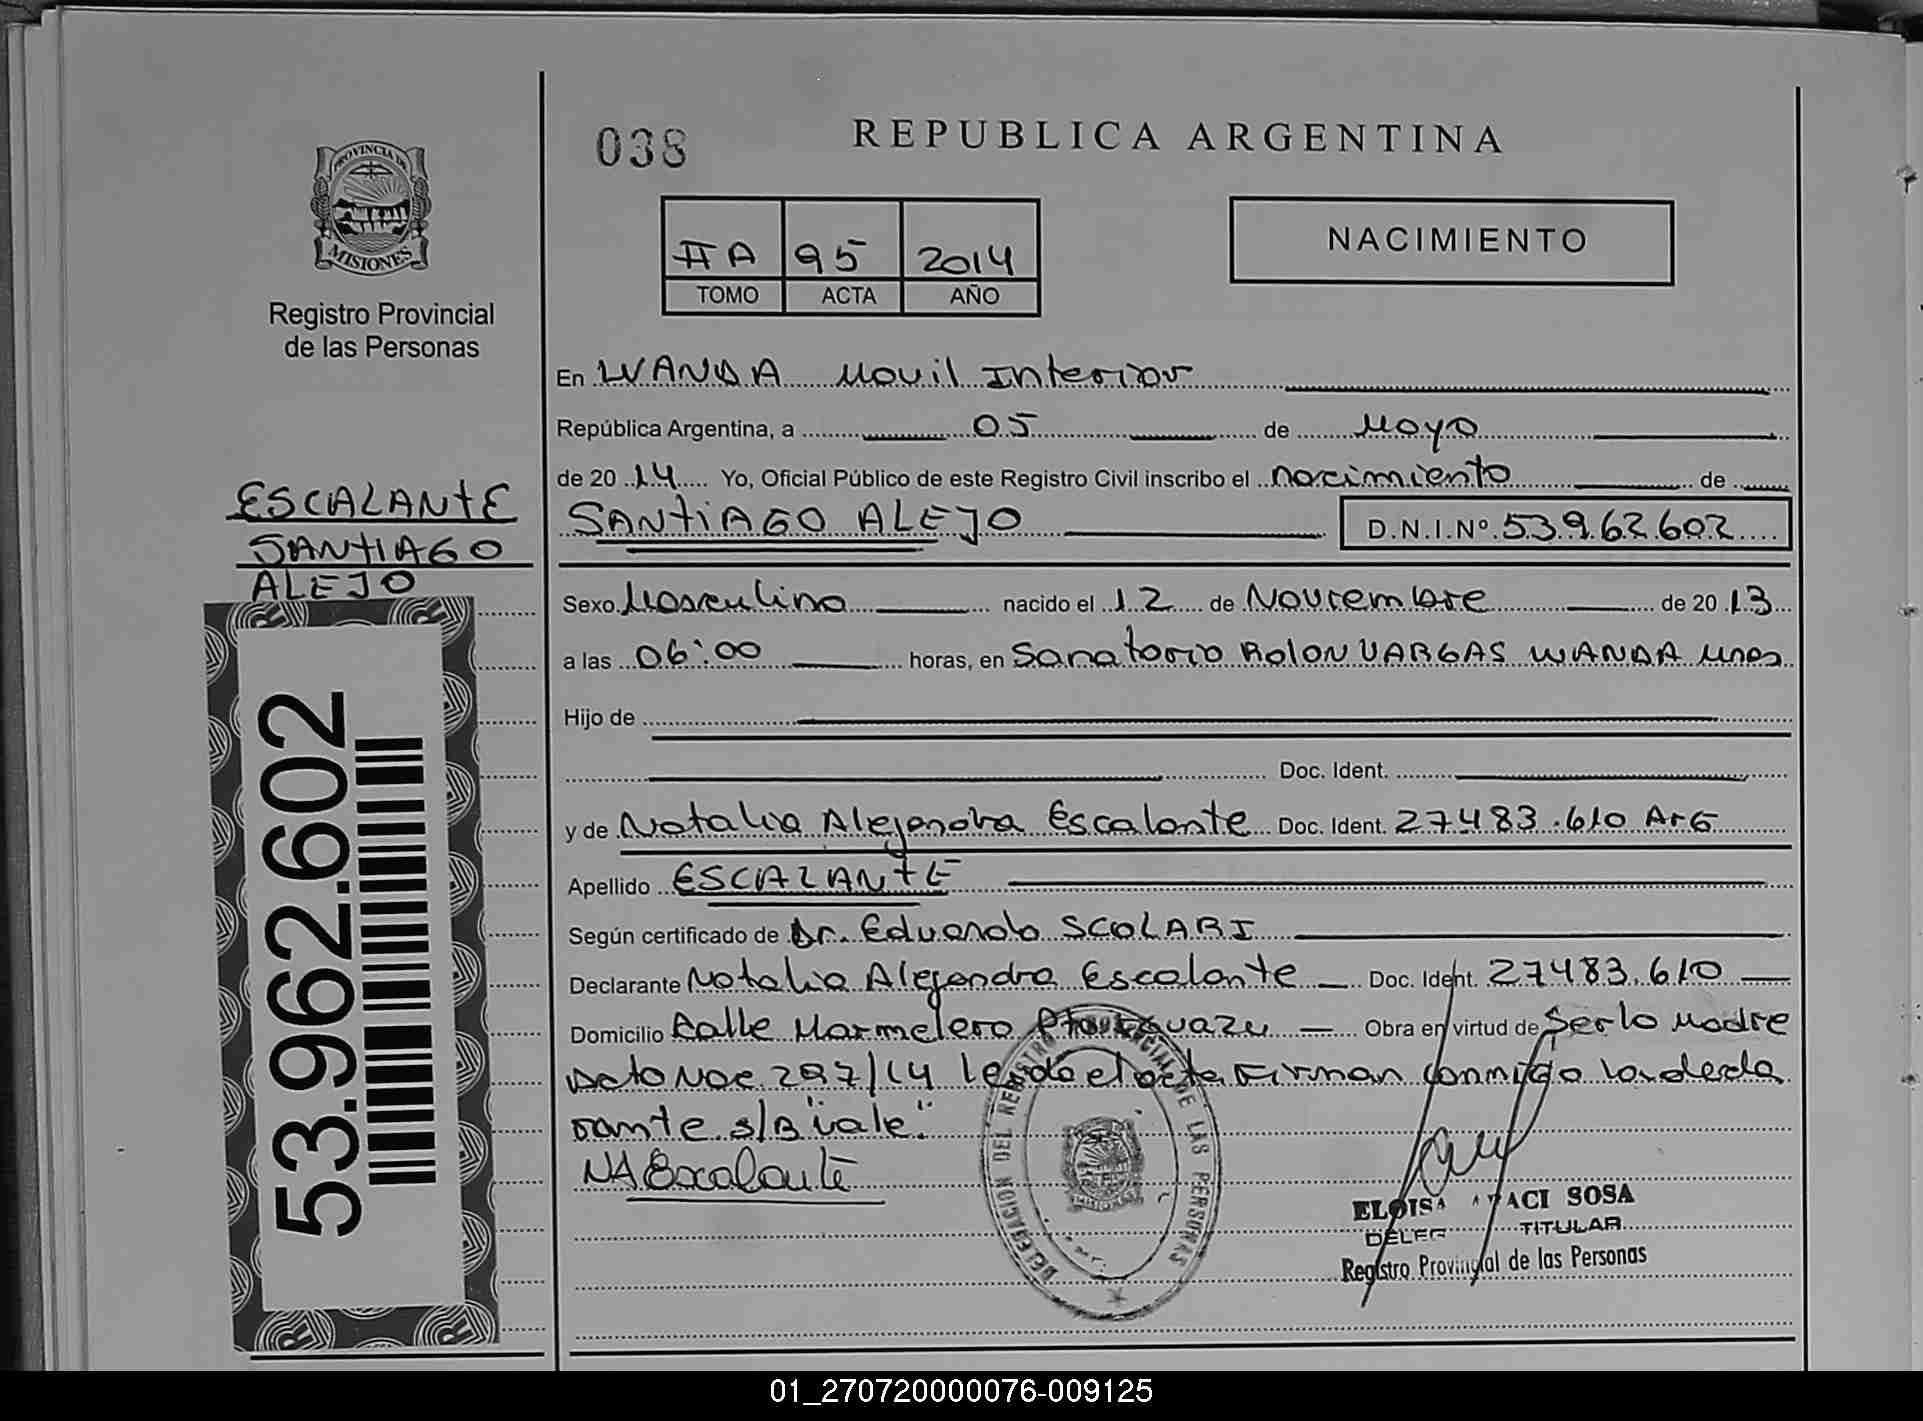 038
REPUBLICA ARGENTINA
PROVINCIA DE
MISIONES
Registro Provincial
de las Personas
IIA 95 2014
TOMO ACTA AÑO
NACIMIENTO
En WANDA Movil Interior
República Argentina, a 05 de Mayo
de 2014 Yo, Oficial Público de este Registro Civil inscribo el nacimiento de
SANTIAGO ALEJO D.N.I.Nº 53.962.602
ESCALANTE
SANTIAGO
ALEJO
53.962.602
Sexo Masculino nacido el 12 de Noviembre de 2013
a las 06:00 horas, en Sanatorio ROLON VARGAS WANDA Mnes
Hijo de
Doc. Ident.
y de Natalia Alejandra Escalante Doc. Ident. 27483.610 ArG
Apellido ESCALANTE
Según certificado de Dr. Eduardo SCOLARI
Declarante Natalia Alejandra Escalante Doc. Ident. 27483.610
Domicilio Calle Marmelero Pto Iguazu Obra en virtud de Ser la Madre
Nac 297/14 leida el acta Firman conmigo la decla
rante s/B "vale"
NAEscalante
DELEGACION DEL REGISTRO PROVINCIAL DE LAS PERSONAS
ELOISA SOSA
TITULAR
Registro Provincial de las Personas
01_270720000076-009125